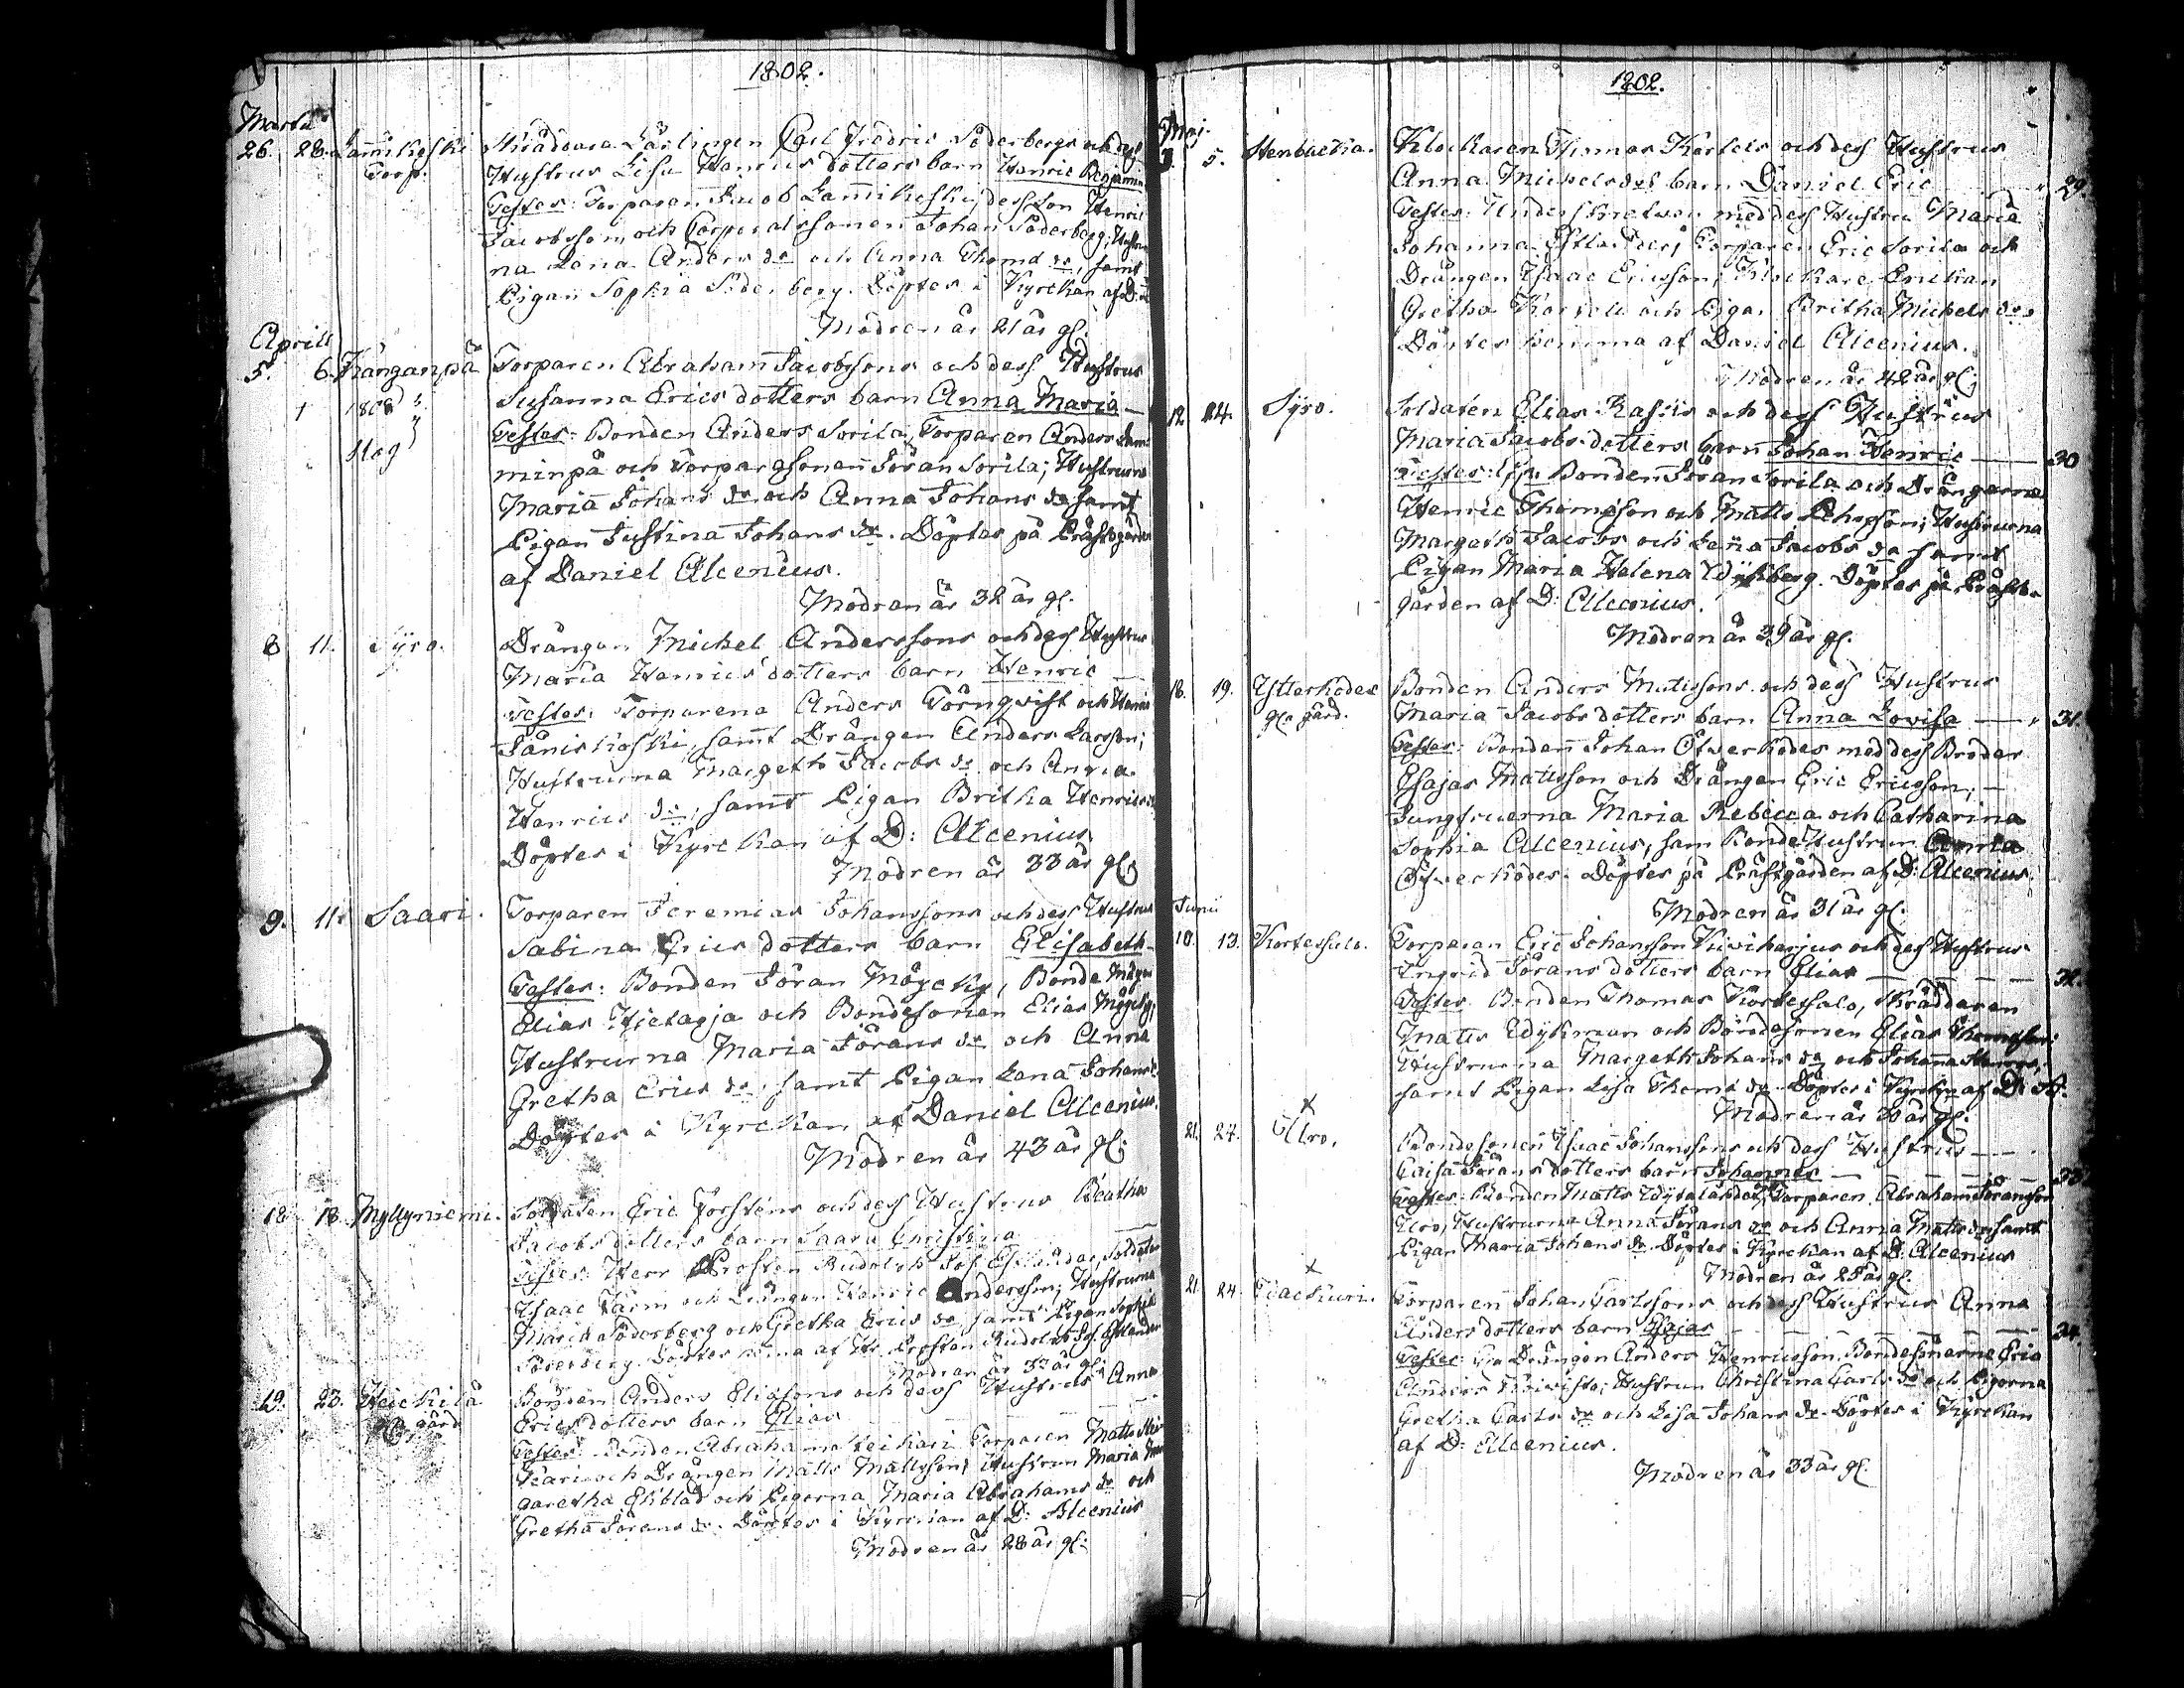 1802.
Martii
26. 28. Lamikoski Skräddare Lärlingen Carl Fredric Söderbergs och dess
Torp. Hustrus Lisa Henrics dotters barn Henric Benjamin
Testes: Torparen Jacob Lamikoski, dess Son Henric
Jacobsson, och Corporalssonen Johan Söderberg; Hustrur
na Lena Anders dr och Anna Thomæ dr, samt
Pigan Sophia Söderberg. Döptes i Kyrckan af D:
Modren är 21 år gl.
Aprill
5. 6. Kånganpä Torparen Abraham Jacobssons och dess Hustrus
Susanna Erics dotters barn Anna Maria —
† 1808 Testes: Bonden Anders Sorila, Torparen Anders Lam
minpä och Torparesonen Jöran Sorila; Hustrurna
Maria Johans dr och Anna Johans dr samt
Pigan Justina Johans dr. Döptes på Prästgården
af Daniel Alcenius.
Modren är 32 år gl.
8 11. Syro. Drängen Michel Anderssons och dess Hustrus
Maria Henrics dotters barn Henric —
Testes: Torparena Anders Törnqvist och Henric
Jäniskoski, samt Drängen Anders Larsson;
Hustrurna Margeth Jacobs dr och Anna
Henrics dr, samt Pigan Britha Henrics
Döptes i Kyrckan af D: Alcenius
Modren är 33 år gl.
9. 11. Saari. Torparen Jeremias Johanssons och dess Hustrus
Sabina Erics dotters barn Elisabeth —
Testes: Bonden Jöran Möycky, Bonde Mågen
Elias Hietaoja och Bondesonen Elias Möycky;
Hustrurna Maria Jörans dr och Anna
Gretha Erics dr, samt Pigan Lena Johans
Döptes i Kyrckan af Daniel Alcenius.
Modren är 43 år gl:
18 18. Myllyniemi. Soldaten Eric Forsténs och dess Hustrus Beatha
Jacobs dotters barn Saara Christina —
Testes: Herr Prosten Rudolph Jos. Estlander, Soldaten
Isaac Tärm och Drängen Henric Andersson; Hustrurna
Maria Söderberg och Gretha Erics dr samt Pigan Sophia
Söderberg. Döptes hema af Hr Prosten Rudolph Jos. Estlander
Modren är 37 år gl:
19. 23. Heickilä Bonden Anders Eliassons och dess Hustrus Anna
gård Erics dotters barn Elias —
Testes: Bonden Abraham Heikari Torparen Matts
och Drängen Matts Mattsson; Hustrun Maria Mar
garetha Ekblad och Pigorna Maria Abrahams dr och
Gretha Jörans dr. Döptes i Kyrckan af D: Alcenius
Modren är 28 år gl:
1802.
Maj.
5. Stenbacka. Klockaren Thomas Kortels och dess Hustrus
Anna Michelsdrs barn Daniel Eric 29.
Testes: med dess Hustru Maria
Johanna Estlander; Torparen Eric Sorila och
Drängen Isaac Ericsson; Klockare Enckan
Gretha Kortell och Pigan Britha Michels dr
Döptes hemma af Daniel Alcenius.
Modren är 42 år gl;
12 24. Syro. Soldaten Elias Rasks och dess Hustrus
Maria Jacobs dotters barn Johan Henric — 30
Testes: Bonden Jöran Sorila och Drängarna
Henric Thomsson och Matts Ephrson; Hustrurna
Margeth Jacobs och Lena Jacobs dr samt
Pigan Maria Helena Dyhberg. Döptes på Präst-
gården af D: Alcenius.
Modren är 39 år gl.
18. 19. Ytterködes Bonden Anders Matssons och dess Hustrus
gård. Maria Jacobs dotters barn Anna Lovisa — 31.
Testes: Bonden Johan Öfwerködes med dess Broder
Esajas Matsson och Drängen Eric Ericsson; —
Jungfruerna Maria Rebecca och Catharina
Sophia Alcenius, sam Bonde Hustrun Anna
Öfwerködes. Döptes på Prästgården af D: Alcenius.
Modren är 31 år gl.
Junii
10. 13. Kortessalo. Torparen Eric Johansson Kiviharjus och dess Hustrus
Ingrid Jörans dotters barn Elias — 32.
Testes: Bonden Thomas Kortessalo, Skräddaren
Matts Dykman och Bondesonen Elias Thomsson:
Hustrurna Margeth Johans dr och Johanna
samt Pigan Lisa Thomæ dr. Döptes i Kyrckan af D: A.
Modren är 30 år gl:
21. 24. × Ulro. Bondesonen Isaac Johanssons och dess Hustrus —
Caisa Jörans dotters barn Johannes — 33
Testes: Bonden Matts, Torparen Abraham Jöransson
Hustrurna Anna Jörans dr och Anna Matts dr samt
Pigan Maria Johans dr. Döptes i Kyrckan af D: Alcenius
Modren är 25 år gl.
21. 24. × Torparen Johan Carlssons och dess Hustrus Anna
Anders dotters barn Esajas — 34.
Testes: Drängen Anders Henricsson, Bondesönerne Eric
Anders; Hustrun Christina Carls dr och Pigorna
Gretha Carls dr och Lisa Johans dr. Döptes i Kyrckan
af D: Alcenius.
Modren är 33 år gl.